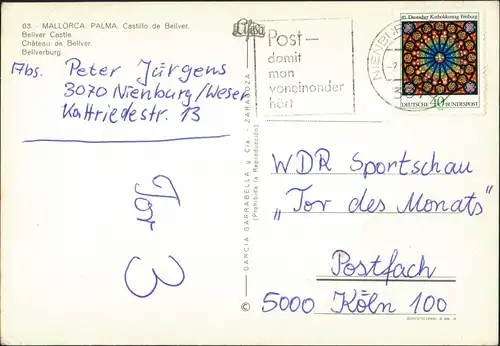 63. - MALLORCA. PALMA. Castillo de Bellver.
Bellver Castle.
Château de Bellver.
Bellverburg.
Abs. Peter Jürgens
3070 Nienburg/Weser
Kattriedestr. 13
Tor 3
GARCIA GARRABELLA y Cía. - ZARAGOZA
(Prohibida la Reproducción)
©
Post-
damit
man
voneinander
hört
NIENBUR
85. Deutscher Katholikentag Freiburg
DEUTSCHE 40 BUNDESPOST
WDR Sportschau
„Tor des Monats"
Postfach
5000 Köln 100